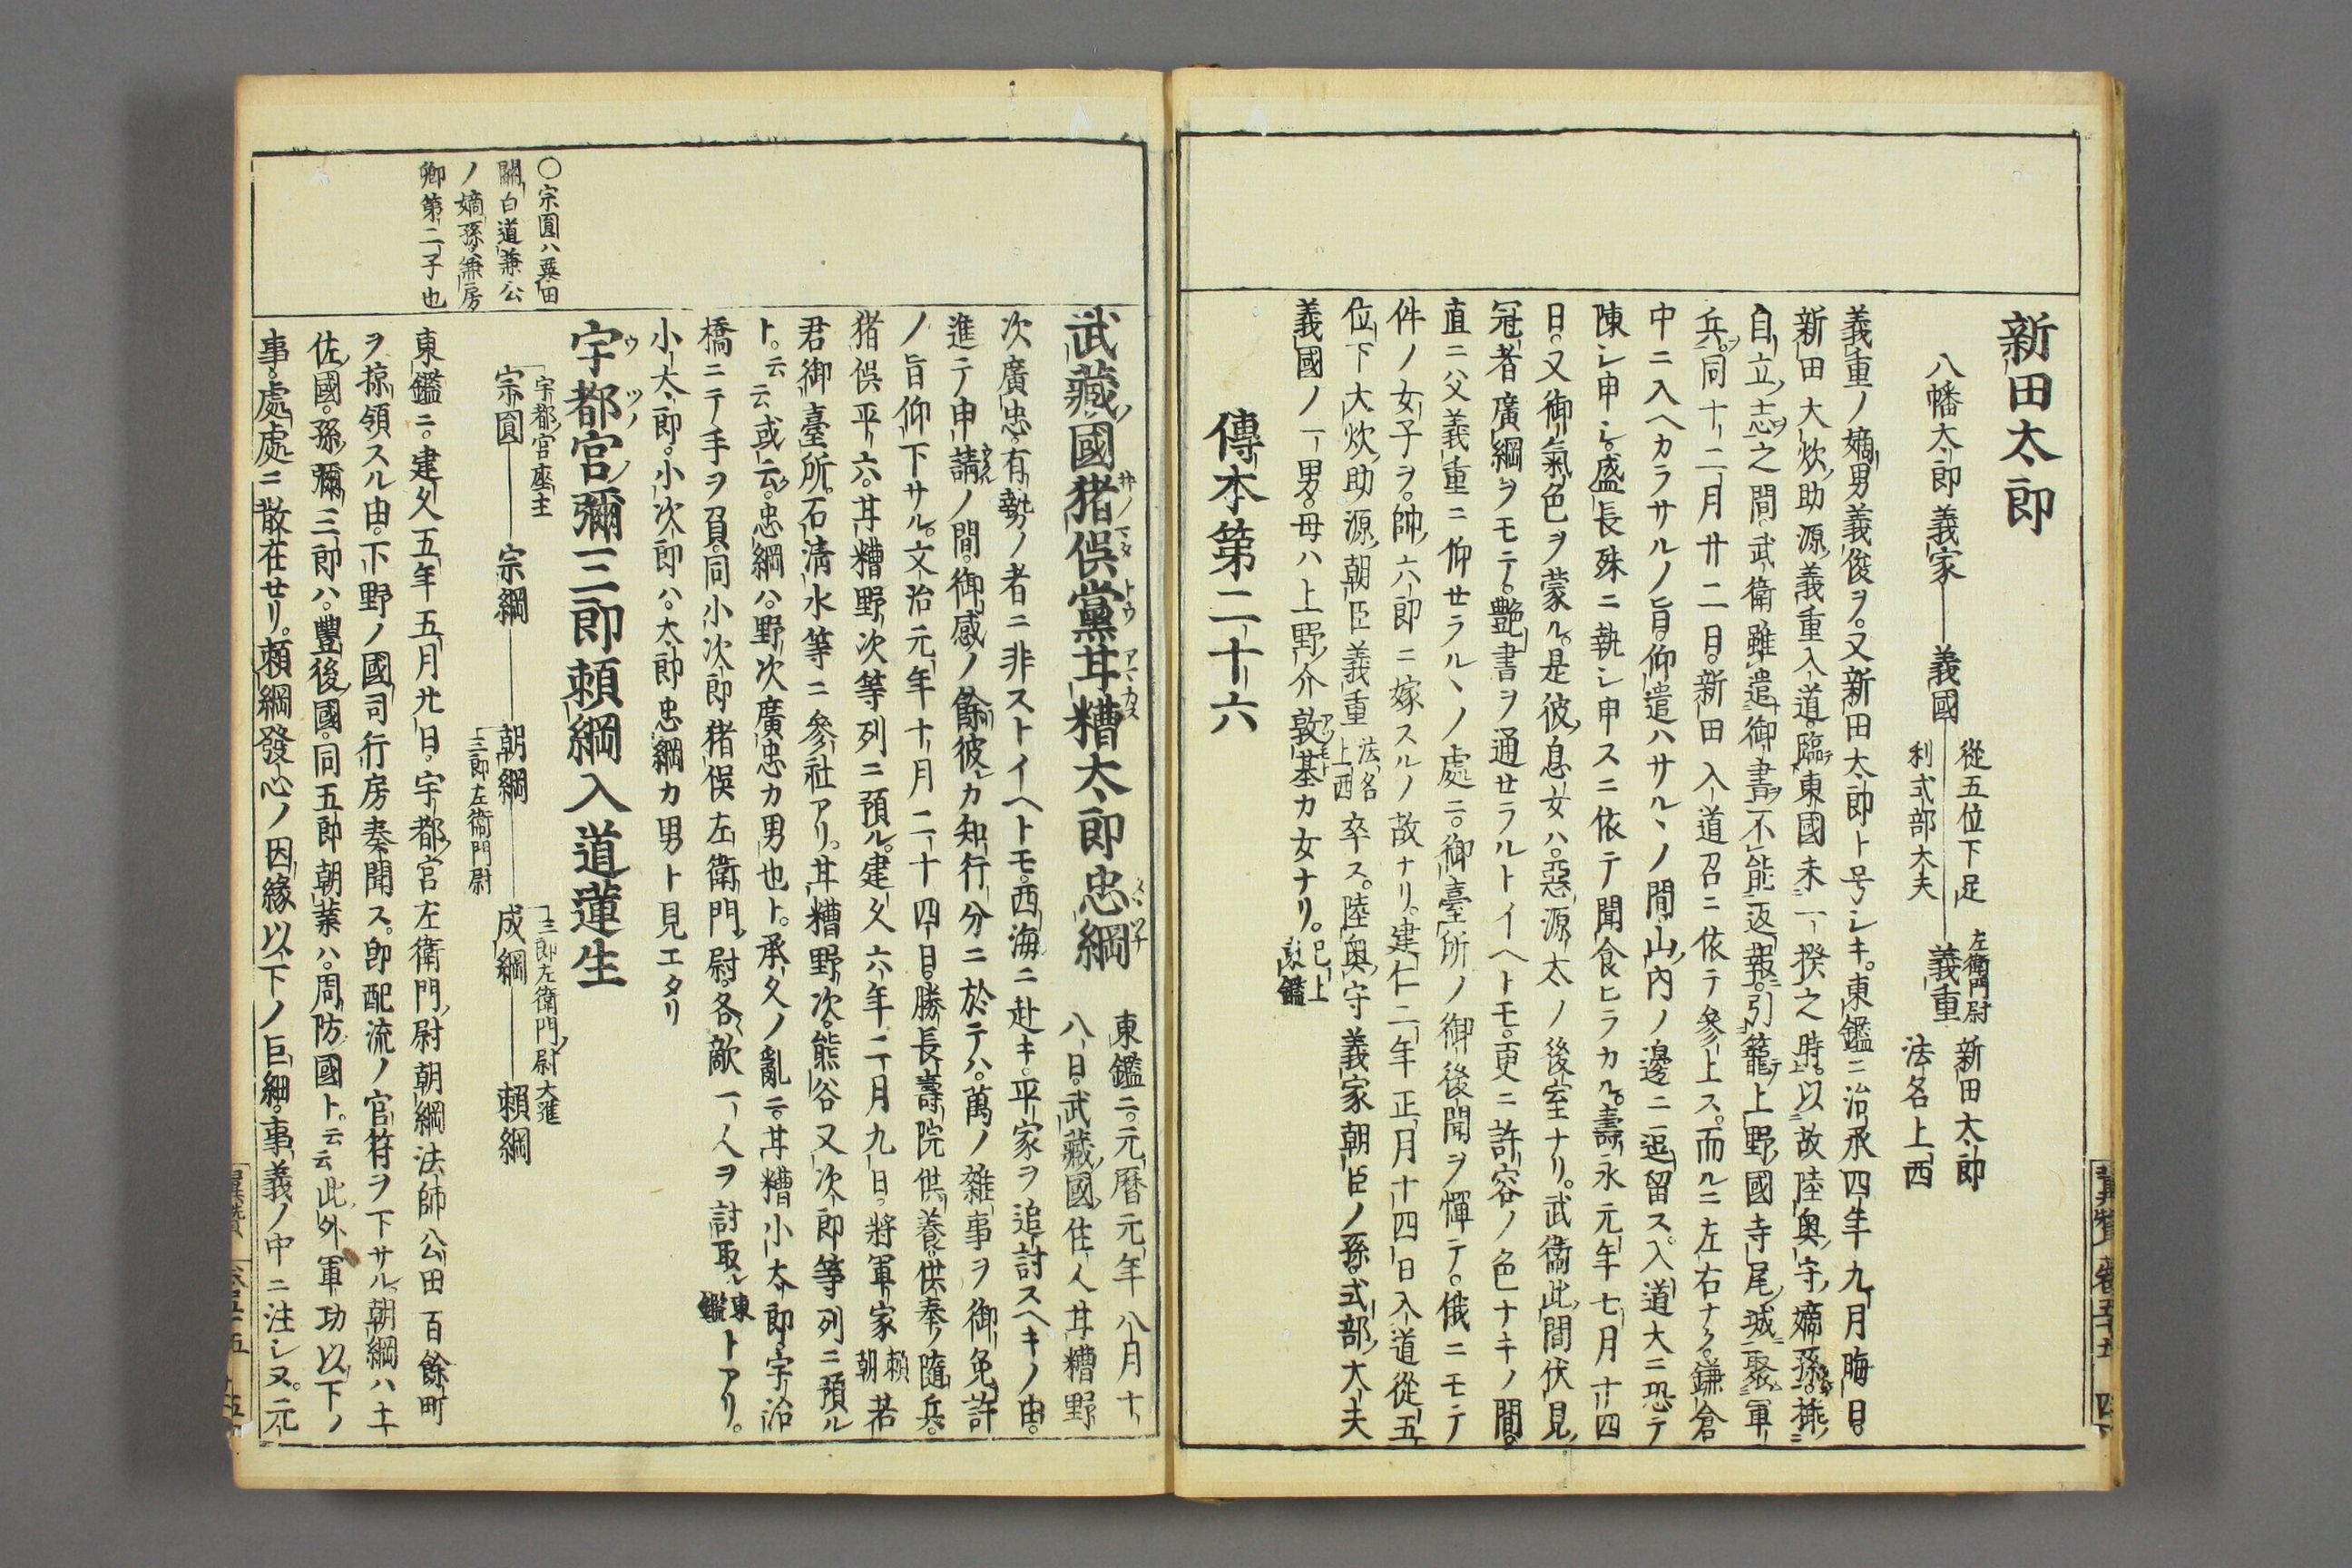 新田太郎
八幡太郎義家 義國 從五位下足利式部大夫 義重 左衛門尉 新田太郎 法名上西
義重ノ嫡男義俊ヲ。又新田太郎ト号シキ。東鑑ニ治承四年九月晦日。
新田大炊助源義重入道。臨東國未一揆之時。以故陸奥守嫡孫。挾
自立志之間。武衛雖遣御書。不能返報。引籠上野國寺尾城。聚軍
兵。同十二月廿二日。新田入道召ニ依テ參上ス。而ルニ左右ナク。鎌倉
中ニ入ヘカラサルノ旨。仰遣ハサルヽノ間。山内ノ邊ニ逗留ス。入道大ニ恐テ
陳シ申シ。盛長殊ニ執シ申スニ依テ聞食ヒラカル。壽永元年七月十四
日。又御氣色ヲ蒙ル。是彼息女ハ。惡源太ノ後室ナリ。武衛此間伏見
冠者廣綱ヲモテ。艶書ヲ通セラルトイヘトモ。更ニ許容ノ色ナキノ間。
直ニ父義重ニ仰セラルヽノ處ニ。御臺所ノ御後聞ヲ憚テ。俄ニモテ
件ノ女子ヲ。帥六郎ニ嫁スルノ故ナリ。建仁二年正月十四日入道從五
位下大炊助源朝臣義重 法名上西 卒ス。陸奥守義家朝臣ノ孫。式部大夫
義國ノ一男。母ハ上野介敦基カ女ナリ。 已上東鑑
傳本第二十六
武藏國猪俣黨甘糟太郎忠綱
東鑑ニ。元暦元年八月十
八日。武藏國住人甘糟野
次廣忠。有勢ノ者ニ非ストイヘトモ。西海ニ赴キ。平家ヲ追討スヘキノ由。
進テ申請ノ間。御感ノ餘。彼カ知行分ニ於テハ。萬ノ雜事ヲ御免許
ノ旨仰下サル。文治元年十月二十四日。勝長壽院供養。供奉ノ隨兵。
猪俣平六。甘糟野次等列ニ預ル。建久六年二月九日。將軍家 頼朝 若
君御臺所。石清水等ニ參社アリ。甘糟野次。熊谷又次郎等列ニ預ル
ト。云云 或云。忠綱ハ。野次廣忠カ男也ト。承久ノ亂ニ。甘糟小太郎宇治
橋ニテ手ヲ負。同小次郎猪俣左衛門尉。各敵一人ヲ討取ル 東鑑 トアリ。
小太郎。小次郎ハ。太郎忠綱カ男ト見エタリ
宇都宮彌三郎頼綱入道蓮生
宗圓 宇都宮座主 宗綱 朝綱 三郎左衛門尉 成綱 三郎左衛門尉大進 頼綱
○宗圓ハ粟田
關白道兼公
ノ嫡孫兼房
卿第二子也
東鑑ニ。建久五年五月廿日。宇都宮左衛門尉朝綱法師公田百餘町
ヲ掠領スル由。下野ノ國司行房奏聞ス。即配流ノ官符ヲ下サル。朝綱ハ土
佐國。孫彌三郎ハ。豐後國。同五郎朝業ハ。周防國ト。云云 此外軍功以下ノ
事。處處ニ散在セリ。頼綱發心ノ因縁以下ノ巨細。事義ノ中ニ注シヌ。元